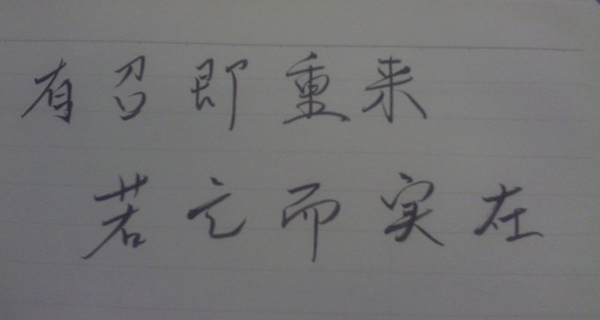 有召即重来
若亡而实在